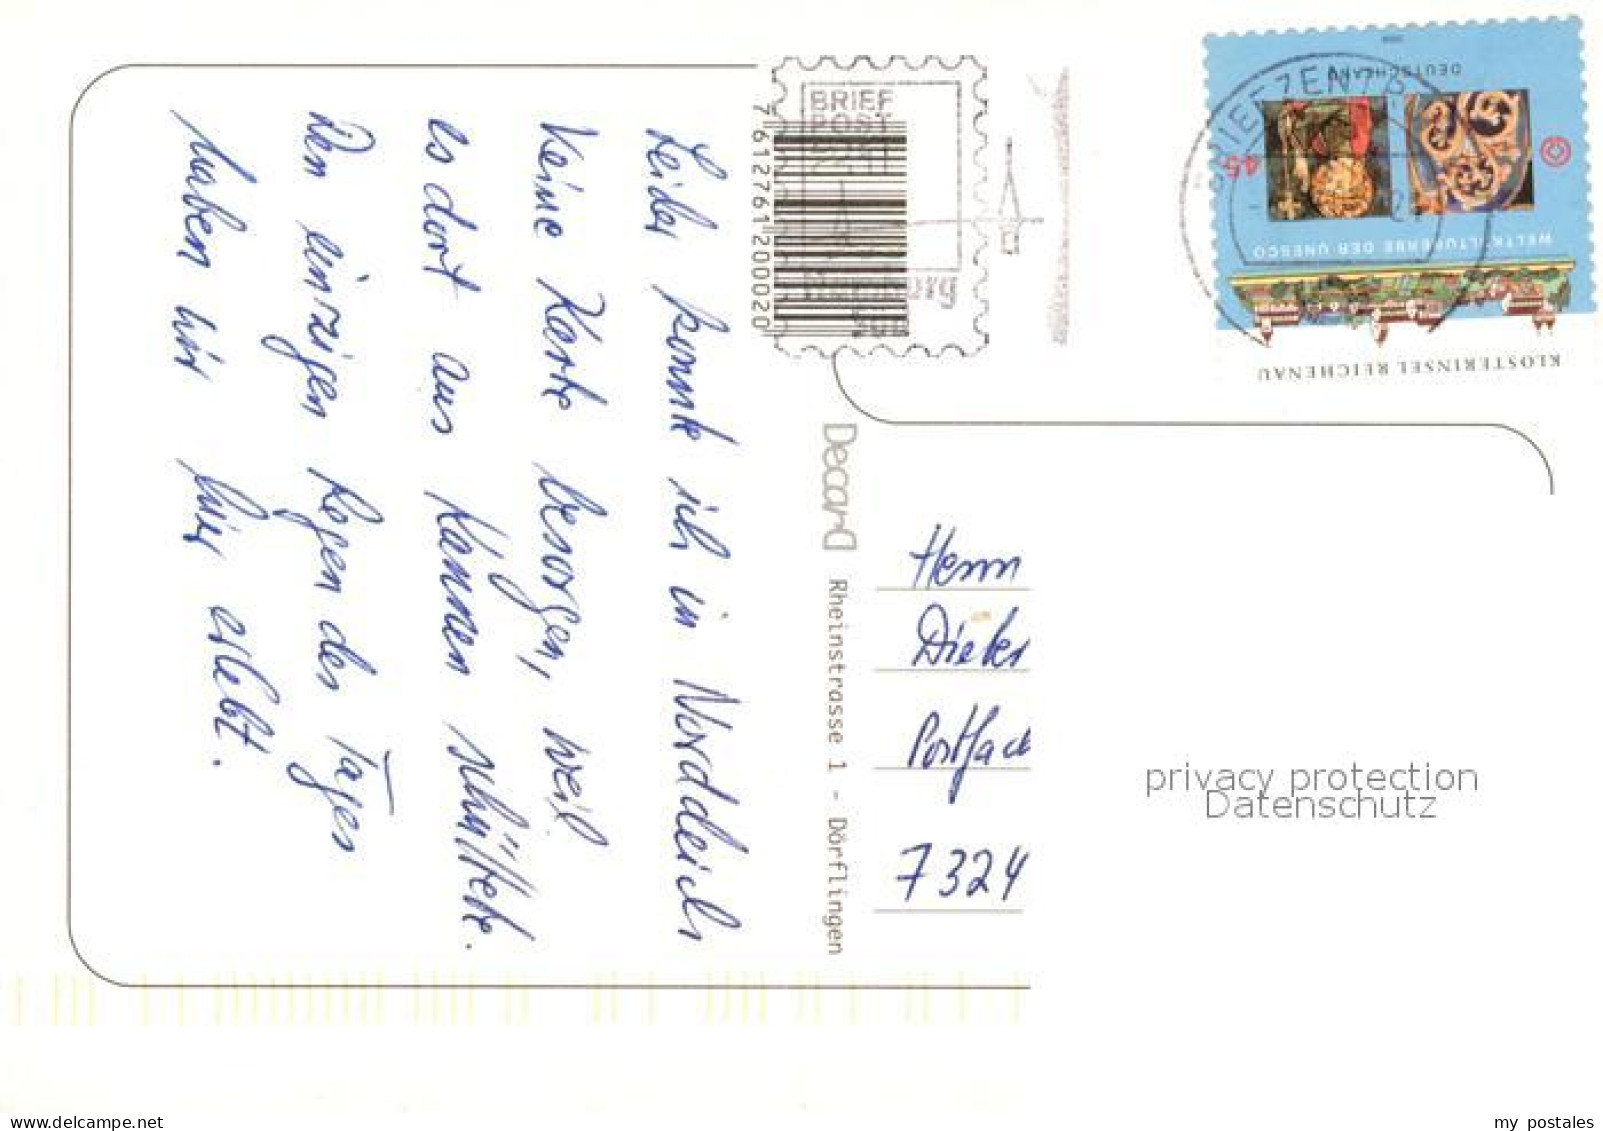 Leider konnte ich in Norddeich
keine Karte besorgen, weil
es dort aus Kannen schüttete.
Den einzigen Regen des Tages
haben wir hier erlebt.
BRIEF
POST
7 612761 200020
Decard Rheinstrasse 1 - Dörflingen
DEUTSCHLAND
45
WELTKULTURERBE DER UNESCO
KLOSTERINSEL REICHENAU
BRIEFZENTR
Herrn
Dieter
Postfach
7324
privacy protection
Datenschutz
www.delcampe.net
my_postales